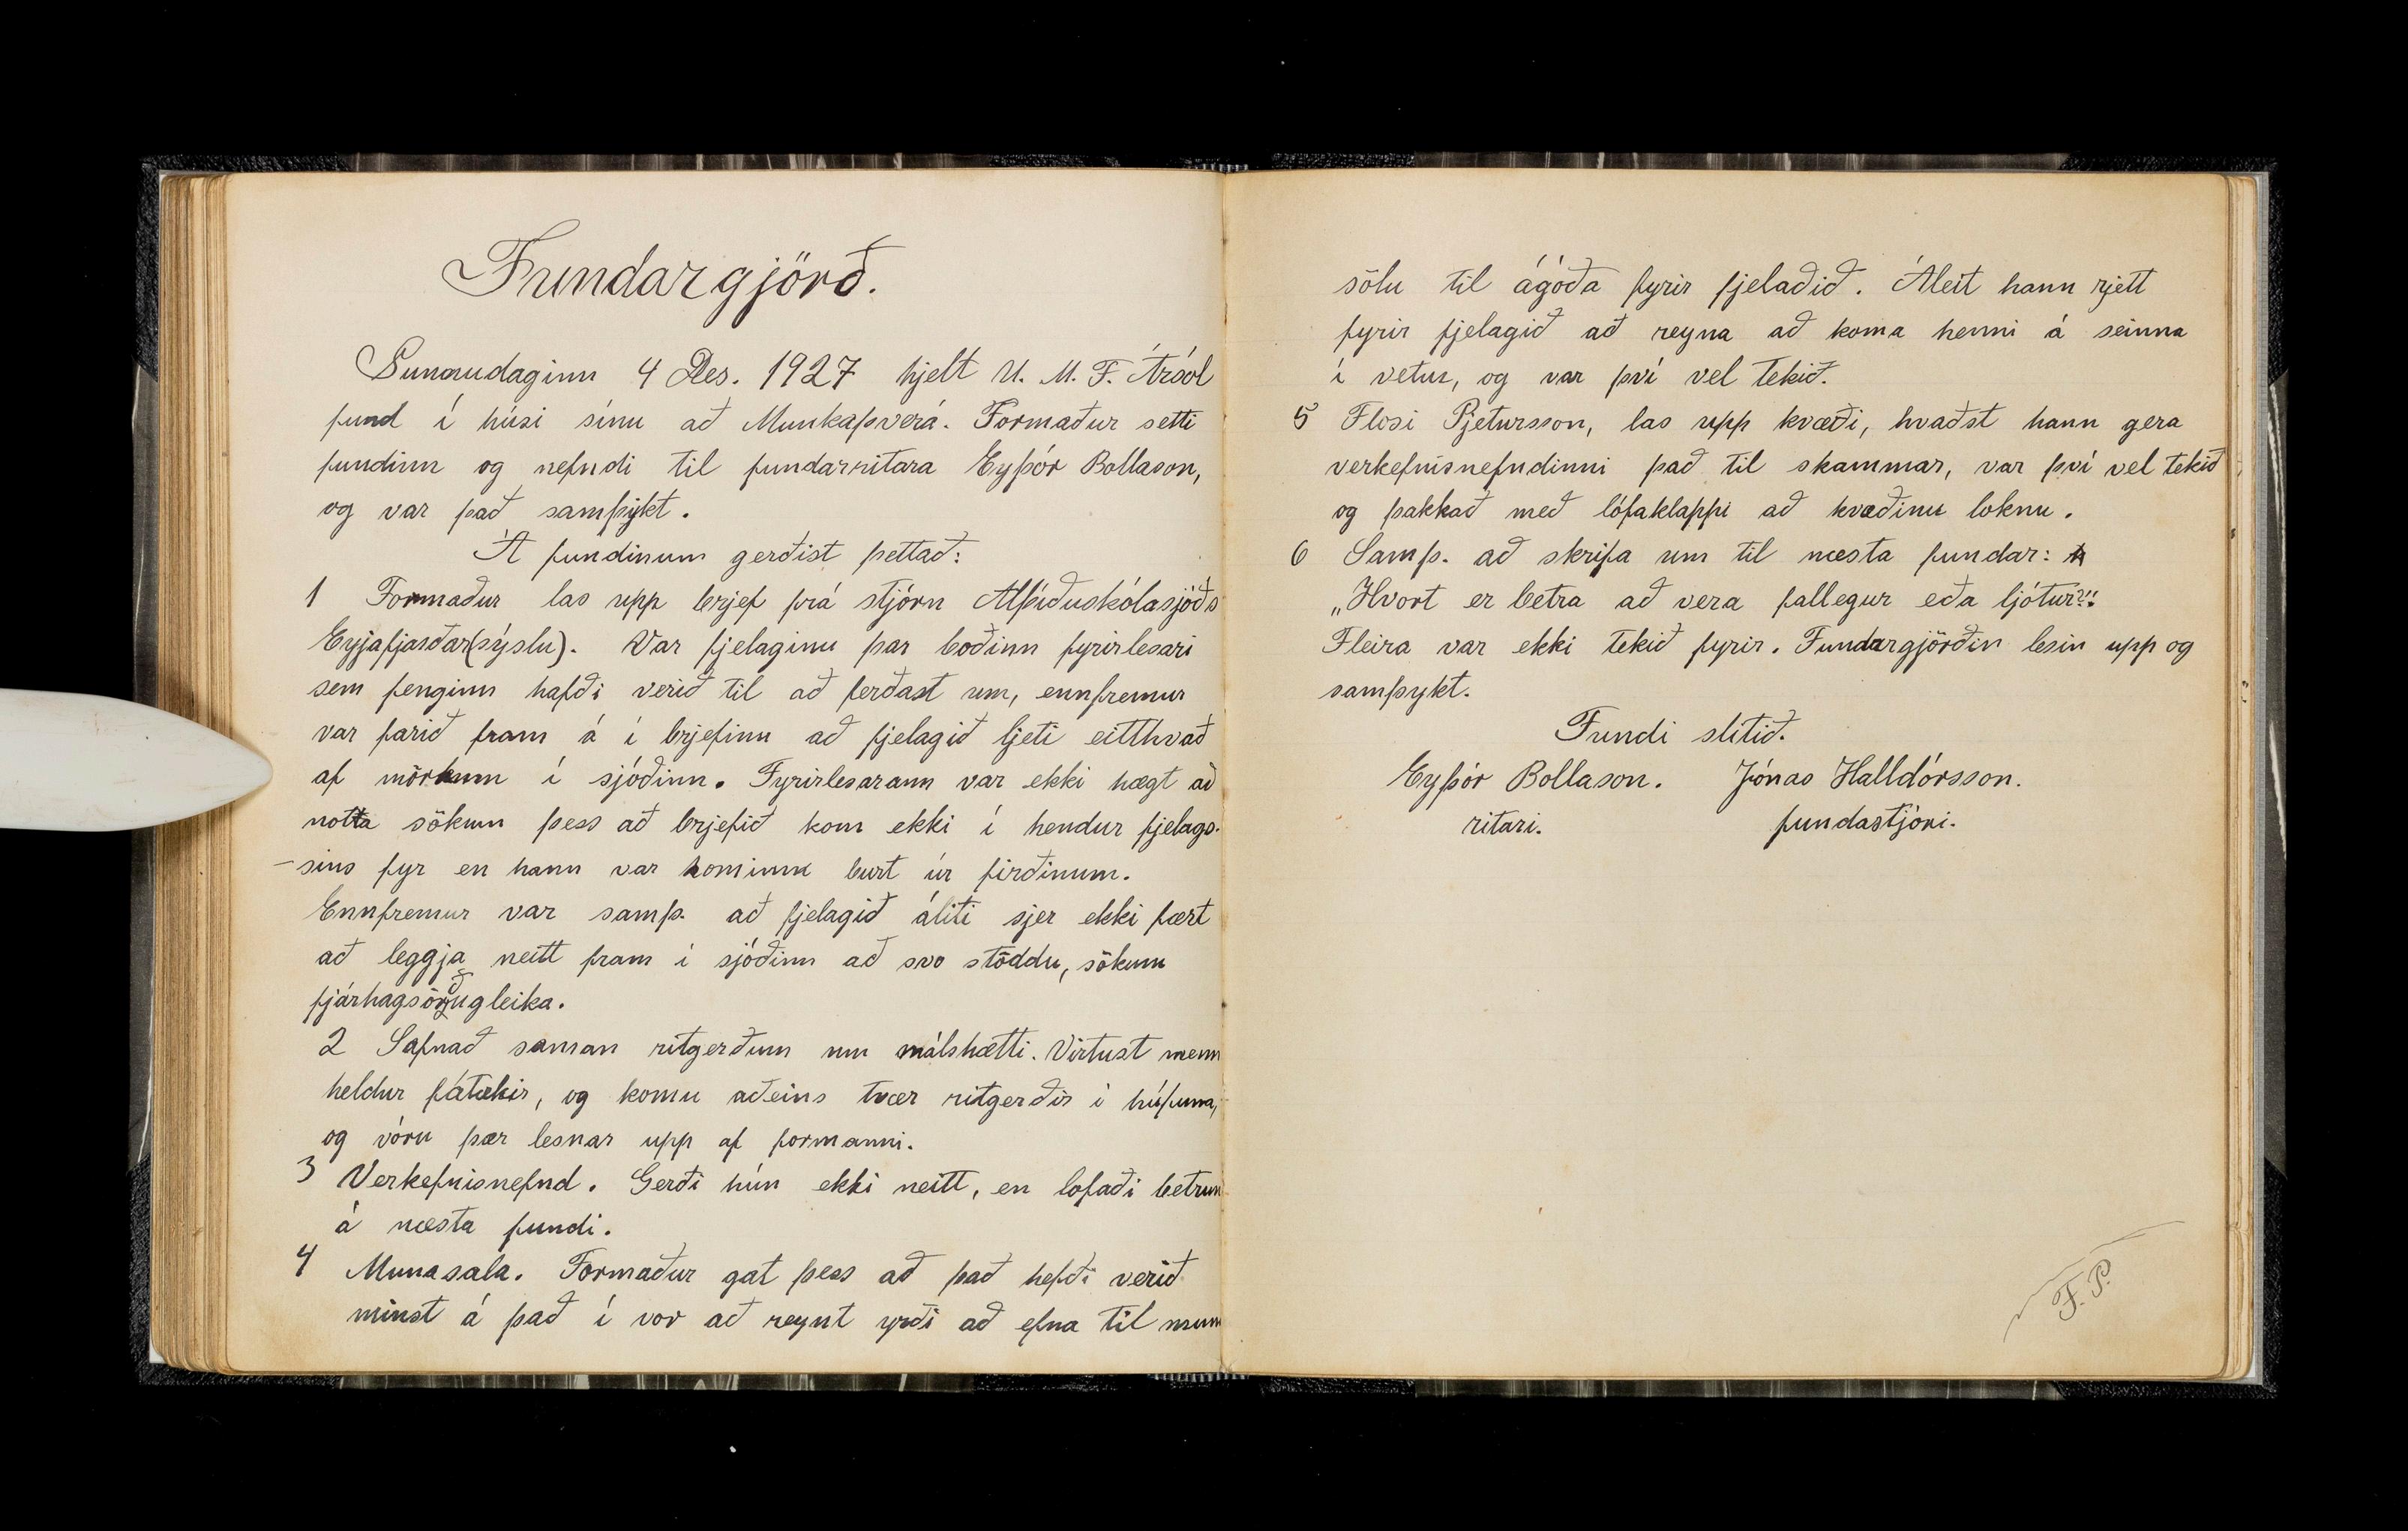 Fundargjörð.
Sunnudaginn 4 Des. 1927 hjelt U. M. F. Ársól
fund í húsi sínu að Munkaþverá. Formaður setti
fundinn og nefndi til fundarritara Eyþór Bollason,
og var það samþykt.
Á fundinum gerðist þettað:
1 Formaður las upp brjef frá stjórn Alþíðuskólasjóðs
Eyjafjarðar(sýslu). Var fjelaginu þar boðinn fyrirlesari
sem fenginn hafði verið til að ferðast um, ennfremur
var farið fram á í brjefinu að fjelagið ljeti eitthvað
af mörkum í sjóðinn. Fyrirlesarann var ekki hægt að
notta sökum þess að brjefið kom ekki í hendur fjelags-
-sins fyr en hann var kominn burt úr firðinum.
Ennfremur var samþ. að fjelagið áliti sjer ekki fært
að leggja neitt fram í sjóðinn að svo stöddu, sökum
fjárhagsörðugleika.
2 Safnað saman ritgerðum um málshætti. Virtust menn
heldur fátækir, og komu aðeins tvær ritgerðir í húfuna,
og vóru þær lesnar upp af formanni.
3 Verkefnisnefnd. Gerði hún ekki neitt, en lofaði betrun
á næsta fundi.
4 Munasala. Formaður gat þess að það hefði verið
minst á það í vor að reynt yrði að efna til mun
sölu til ágóða fyrir fjelaðið. Áleit hann rjett
fyrir fjelagið að reyna að koma henni á seinna
í vetur, og var því vel tekið.
5 Flosi Pjetursson, las upp kvæði, hvaðst hann gera
verkefnisnefndinni það til skammar, var því vel tekið
og þakkað með lófaklappi að kvæðinu loknu.
6 Samþ. að skrifa um til næsta fundar:
„Hvort er betra að vera fallegur eða ljótur?“
Fleira var ekki tekið fyrir. Fundargjörðin lesin upp og
samþykt.
Fundi slitið.
Eyþór Bollason. Jónas Halldórsson.
ritari. fundastjóri.
F. P.